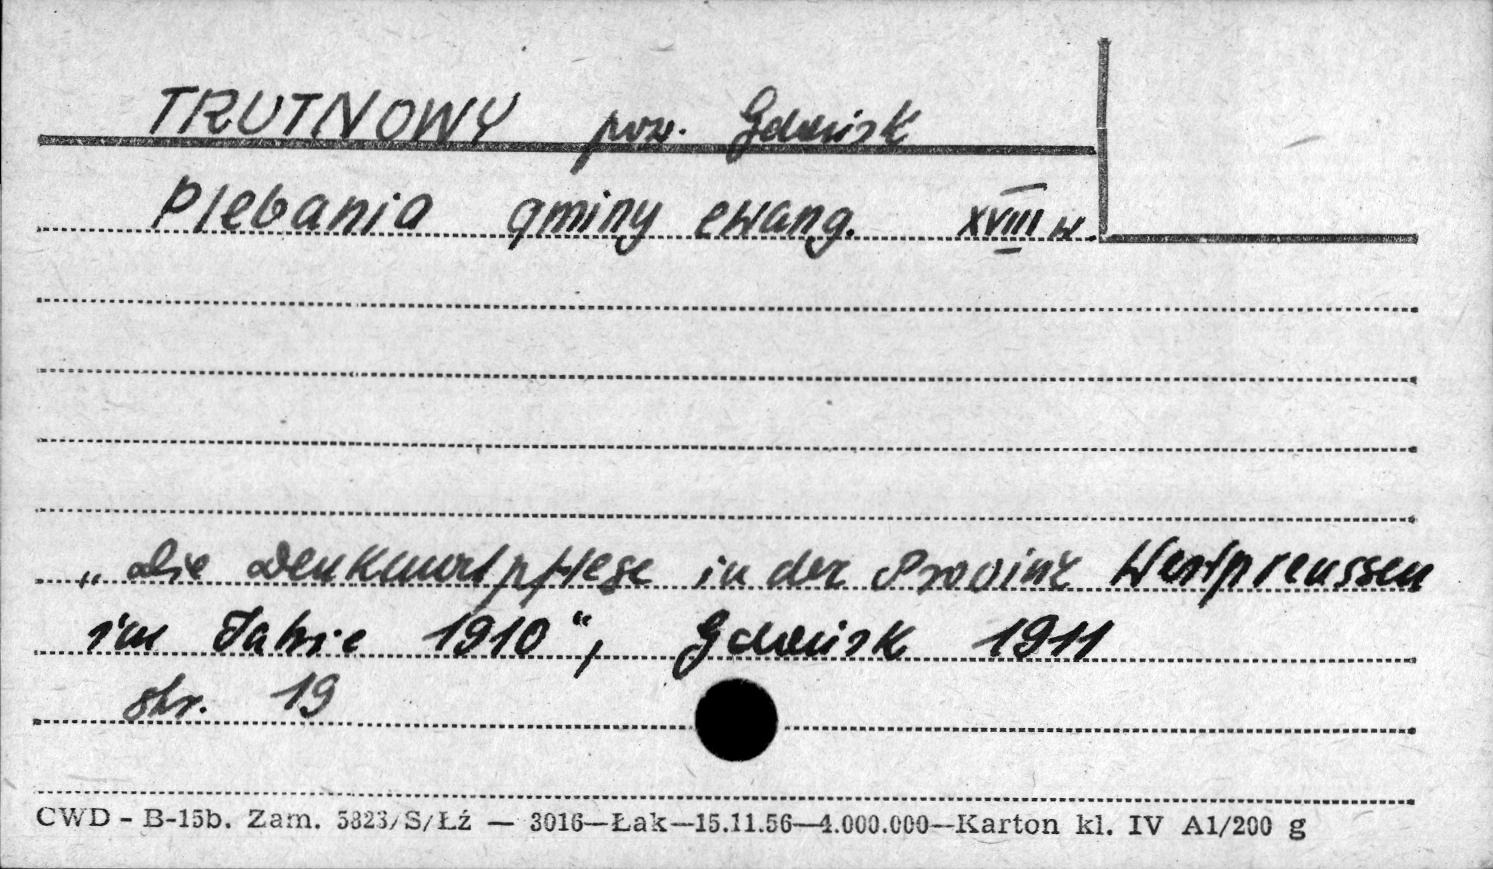 TRUTNOWY pow. Gdańsk
Plebania gminy ewang. XVIII w.
„Die Denkmalpflege in der Provinz Westpreussen
im Jahre 1910“, Gdańsk 1911
str. 19
CWD - B-15b. Zam. 5823/S/Łź — 3016—Łak—15.11.56—4.000.000—Karton kl. IV A1/200 g